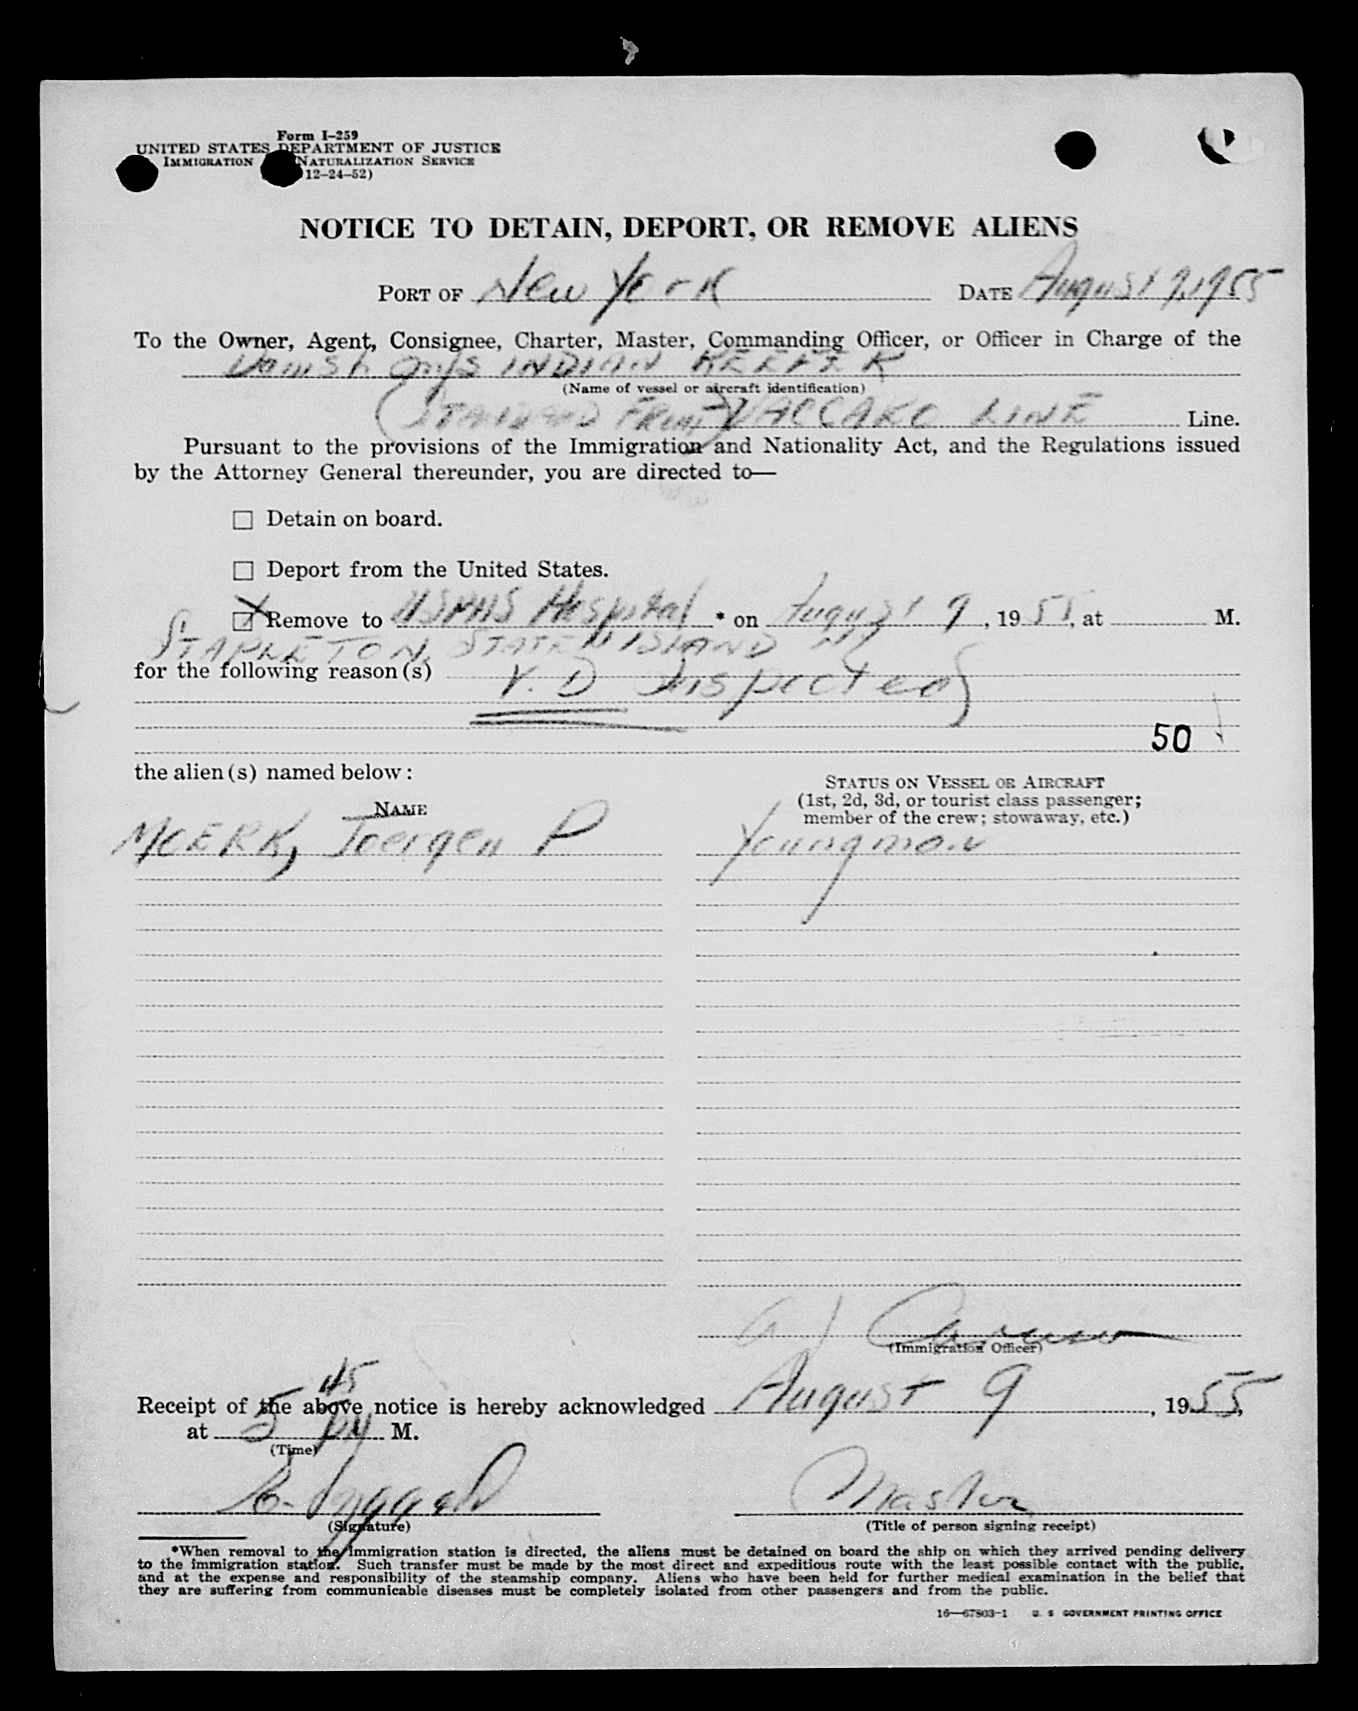 Form I-259
UNITED STATES DEPARTMENT OF JUSTICE
IMMIGRATION NATURALIZATION SERVICE
12-24-52)
NOTICE TO DETAIN, DEPORT, OR REMOVE ALIENS
PORT OF New York DATE August 9, 1955
To the Owner, Agent, Consignee, Charter, Master, Commanding Officer, or Officer in Charge of the
Danish m/s INDIAN REEFER
(Name of vessel or aircraft identification)
(STANDARD FRUIT) VACCARO LINE Line.
Pursuant to the provisions of the Immigration and Nationality Act, and the Regulations issued
by the Attorney General thereunder, you are directed to—
☐ Detain on board.
☐ Deport from the United States.
☒ Remove to USPHS Hospital * on August 9, 1955, at M.
STAPLETON, STATEN ISLAND NY
for the following reason(s) V. D Inspected
50
the alien(s) named below:
NAME
STATUS ON VESSEL OR AIRCRAFT
(1st, 2d, 3d, or tourist class passenger;
member of the crew; stowaway, etc.)
MOERK, Joergen P Youngman
A J Caruso
(Immigration Officer)
Receipt of the above notice is hereby acknowledged August 9, 1955,
at 5 45 PM M.
(Time)
Master
(Signature) (Title of person signing receipt)
*When removal to the immigration station is directed, the aliens must be detained on board the ship on which they arrived pending delivery
to the immigration station. Such transfer must be made by the most direct and expeditious route with the least possible contact with the public,
and at the expense and responsibility of the steamship company. Aliens who have been held for further medical examination in the belief that
they are suffering from communicable diseases must be completely isolated from other passengers and from the public.
16—67803-1 U. S GOVERNMENT PRINTING OFFICE